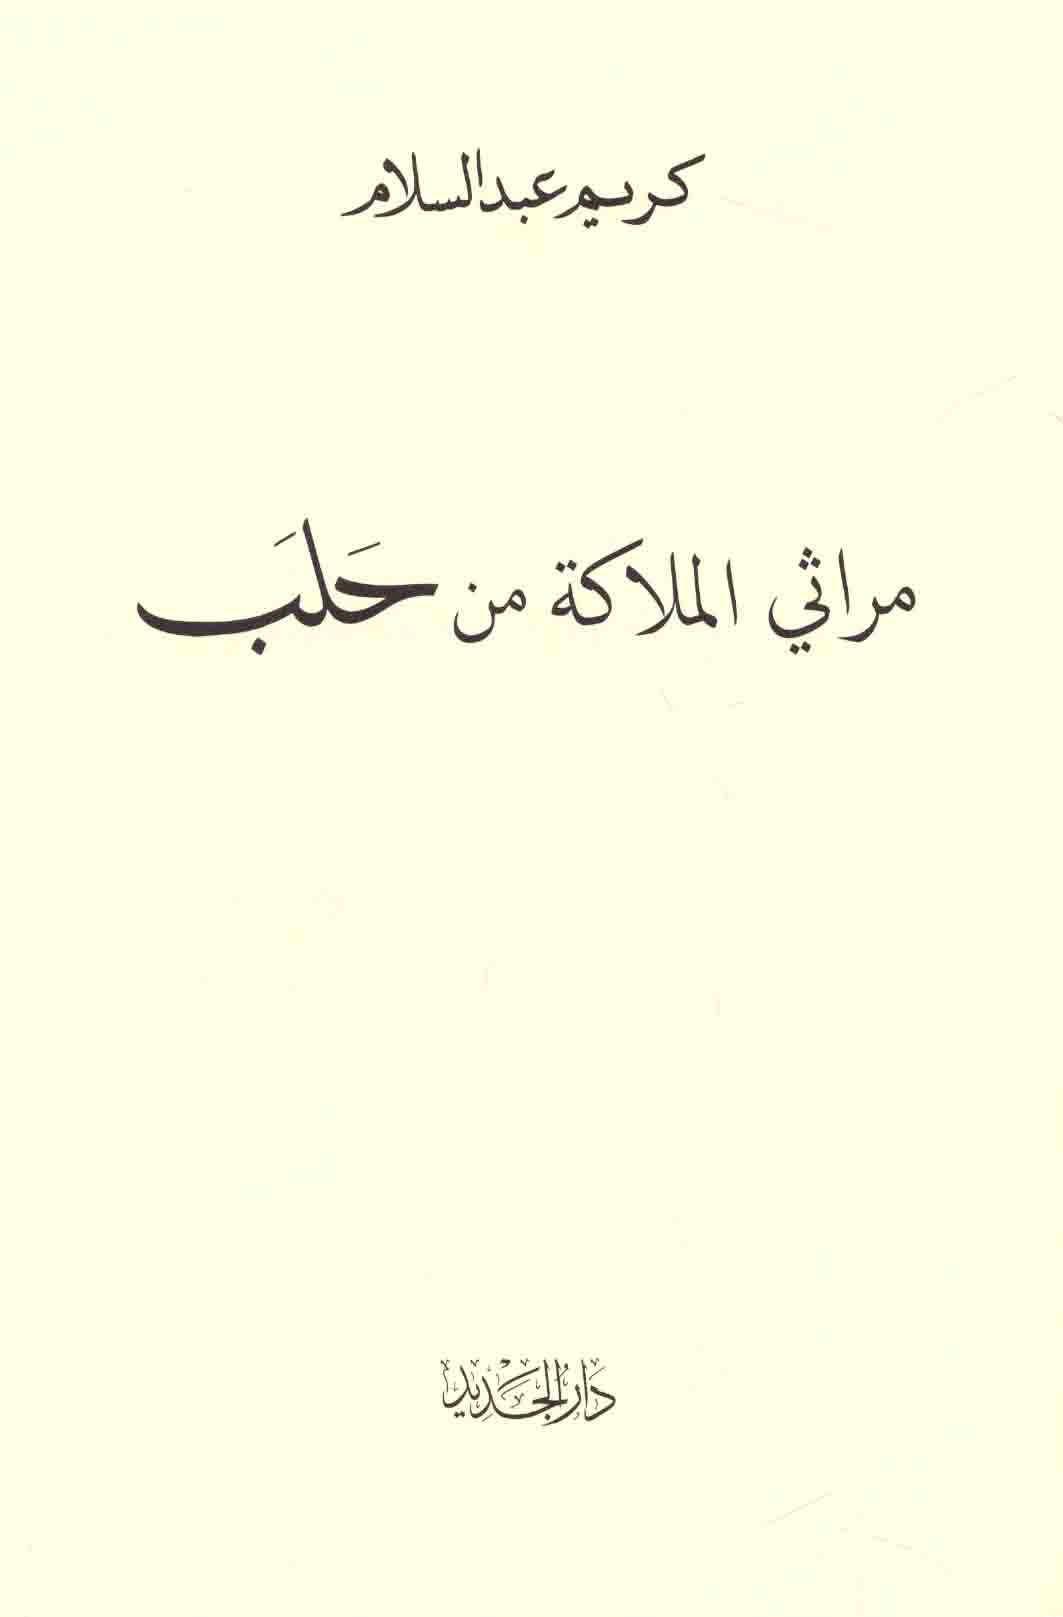 كريم عبدالسلام
مراثي الملاكة من حَلَب
دَارُ الجَدِيد